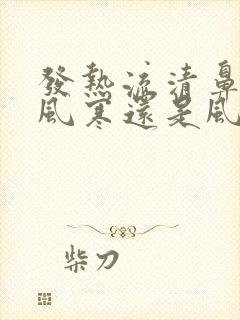 發熱流清鼻
風寒還是風
柴刀